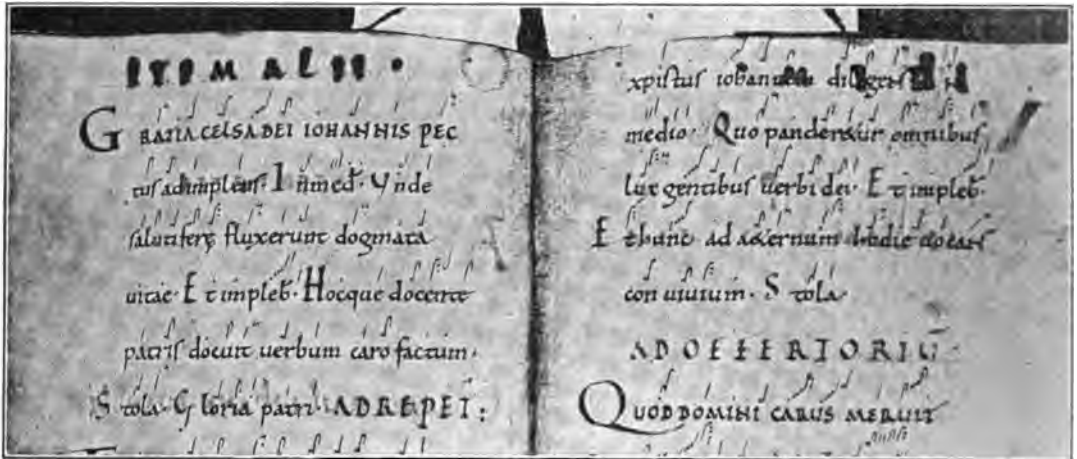 ITEM ALII.
GRATIA CELSA DEI IOHANNIS PEC
tus adimplens. In med. Vnde
salutiferę fluxerunt dogmata
uitae. Et impleb. Hocque docente
patris docuit uerbum caro factum.
Stola. Gloria patri. AD REPET:
xpistus iohannem
medio. Quo panderetur omnibus
lux gentibus uerbi dei. Et impleb.
Et hunc ad aeternum hodie
conuiuium. Stola.
AD OFFERTORIŪ
QUOD DOMINI CARUS MERUIT